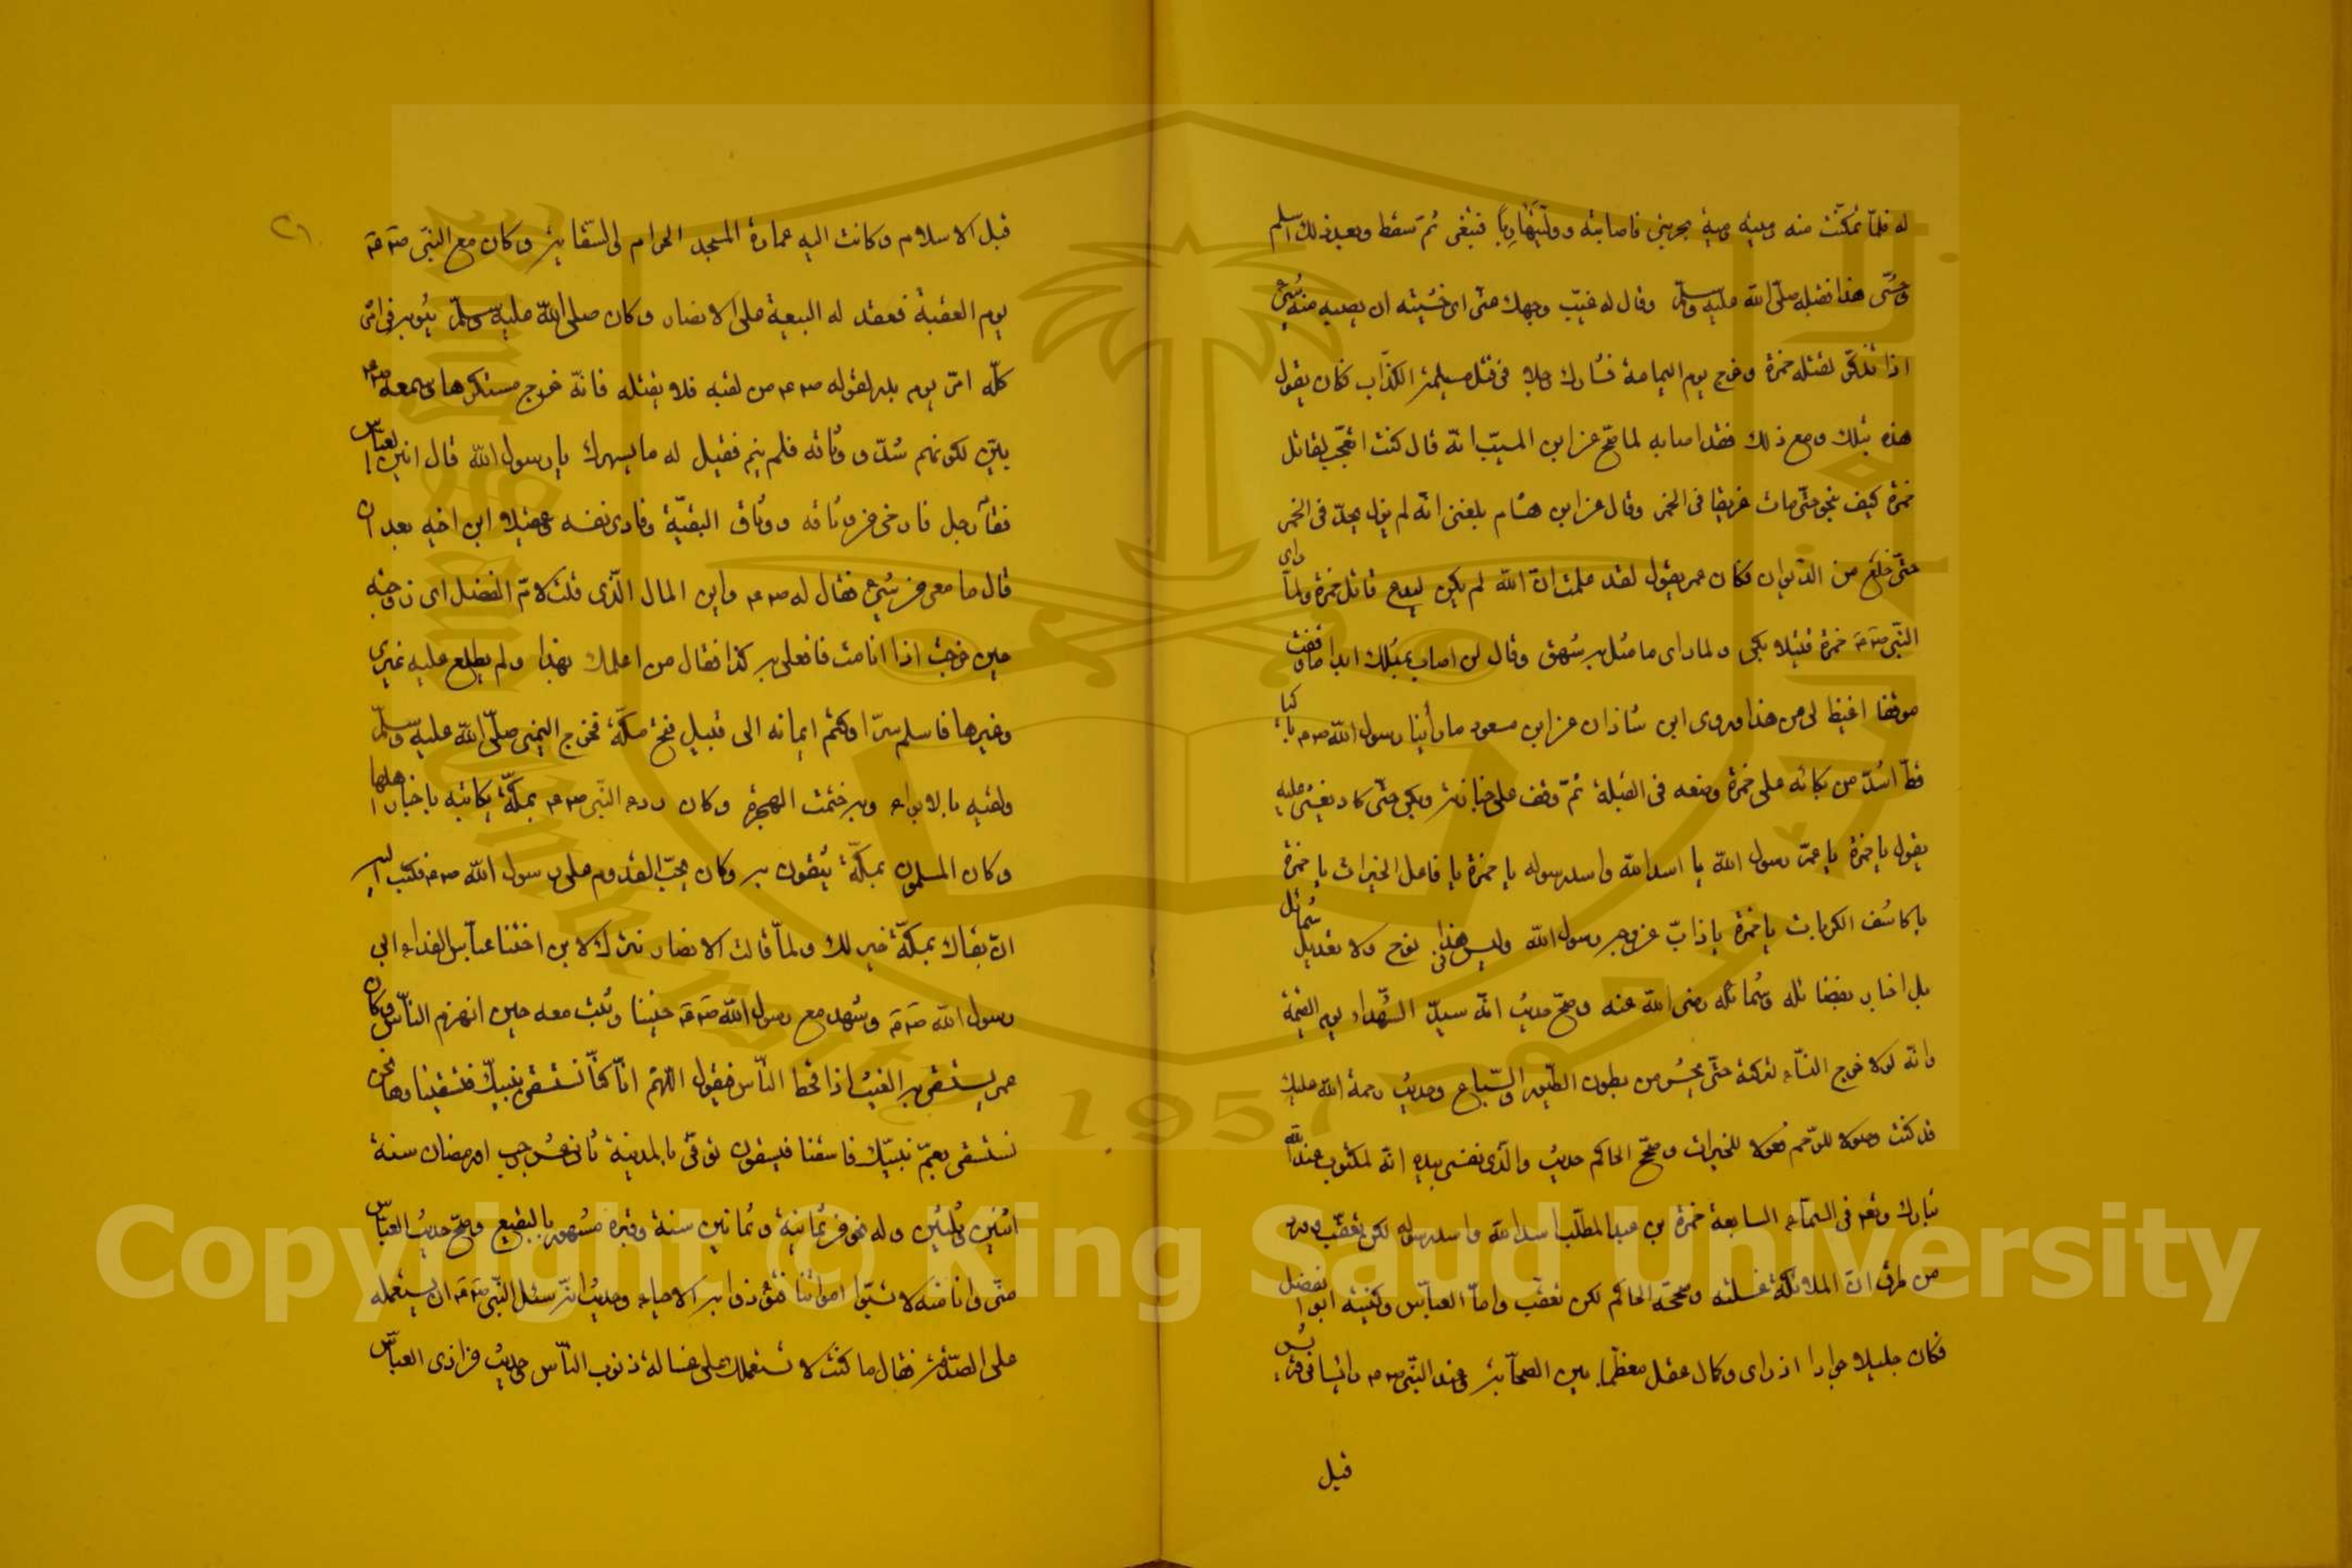 له فلمّا تمكّنت منه رميته رمية بحربتي فاصابته وولّيت هاربًا فتبعني ثمّ سقط وبعد ذلك اسلم
وحشى هذا فقبله صلّى الله عليه وسلّم وقال له غيّب وجهك عنّى اى خشيته ان يصيبه منه شئ
اذا تذكّر لقتله حمزة وخرج يوم اليمامة فشارك رجلا فى قتل مسيلمة الكذّاب فكان يقول
هذه بتلك ومع ذلك فقد اصابه لما صحّ عن ابن المسيّب انّه قال كنت اتعجّب لقاتل
حمزة كيف ينجو حتّى مات غريقا فى الخمر وقال عن ابن هشام بلغنى انّه لم يزل يحدّ فى الخمر
حتّى خلع من الدّيوان فكان عمر يقول لقد علمت انّ الله لم يكن ليدع قاتل حمزة ولمّا راى
النّبى صَ مَ حمزة قتيلا بكى ولما راى ما مثّل به شهق وقال لن اصاب بمثلك ابدا ما وقفت
موقفا اغيظ لى من هذا وروى ابن شاذان عن ابن مسعود ما رأينا رسول الله ص م باكيا
قطّ اشدّ من بكائه على حمزة وضعه فى القبلة ثمّ وقف على جنازته وبكى حتّى كاد يغشى عليه
يقول يا حمزة يا عمّ رسول الله يا اسد الله واسد رسوله يا حمزة يا فاعل الخيرات يا حمزة
يا كاشف الكربات يا حمزة يا ذابّ عن وجه رسول الله وليس فى هذا نوح ولا تعديل شمائل
بل اخبار بفضائله وشمائله رضى الله عنه وصحّ حديث انّه سيّد الشّهداء يوم القيمة
وانّه لولا جزع النّساء لتركته حتّى يحشر من بطون الطّيور والسّباع وحديث رحمة الله عليك
قد كنت وصولا للرّحم فعولا للخيرات وصحّح الحاكم حديث والّذى نفسى بيده انّه لمكتوب عند الله
تبارك وتعه فى السّماء السابعة حمزة بن عبد المطلّب اسد الله واسد رسوله لكن تعقّب وورد
من طرق انّ الملائكة غسلته وصحّحه الحاكم لكن تعقّب وامّا العبّاس وكنيته ابو الفضل
فكان جليلا جوادا اذ راى وكمال عقل معظّما بين الصحابة وعند النّبى ص م رائيسا فى قريش
قبل
٢١
قبل الاسلام وكانت اليه عمارة المسجد الحرام والسّقاية وكان مع النبى صَ مَ
يوم العقبة فعقد له البيعة على الانصار وكان صلى الله عليه وسلّم يثق به فى امره
كلّه امّن يوم بدر لقوله ص م من لقيه فلا يقتله فانّه خرج مستكرها وسمعه ص م
يئنّ لكونهم شدّو وثاقه فلم ينم فقيل له ما يسهرك يا رسول الله قال انين العبّاس
فقام رجل فارخى من وثاقه ووثاق البقيّة وفادى نفسه وعقيلا ابن اخيه بعد ان
قال ما معى من شئ فقال له ص م واين المال الّذى قلت لامّ الفضل اى زوجته
حين خرجت اذا انا مت فافعلى به كذا فقال من اعلمك بهذا ولم يطلع عليه غيرى
وغيرها فاسلم سرّا وكتم ايمانه الى قبيل فتح مكّة فخرج النبى صلّى الله عليه وسلّم
ولقيه بالابواء وبه ختمت الهجرة وكان ردء النّبى ص م بمكّة يكاتبه باخبار اهلها
وكان المسلمون بمكّة يثقون به وكان يحبّ القدوم على رسول الله ص م فكتب اليه
انّ بقاك بمكّة خير لك ولمّا قالت الانصار نترك لابن اختنا عبّاس الفداء ابى
رسول الله صَ مَ وشهد مع رسول الله صَ مَ حنينا وثبت معه حين انهزم النّاس وكان
عمر يستسقى به الغيث اذا قحط النّاس فيقول اللهمّ انّا كنّا نستسقى بنبيّك فتسقينا وها نحن
نستسقى بعمّ نبيّك فاسقنا فيسقون توفّى بالمدينة ثانى عشر رجب او رمضان سنة
اثنين وثلثين وله نحو من ثمانية وثمانين سنة وقبره مشهور بالبقيع وصحّ حديث العبّاس
منّى وانا منه لا تسبّوا امواتنا فتؤذوا به الاحياء وحديث انّه سئل النّبى صَ مَ ان يستعمله
على الصدّقة فقال ما كنت لا ستعملك على غسالة ذنوب النّاس وحديث من اذى العبّاس
Copyright © King Saud University
1957